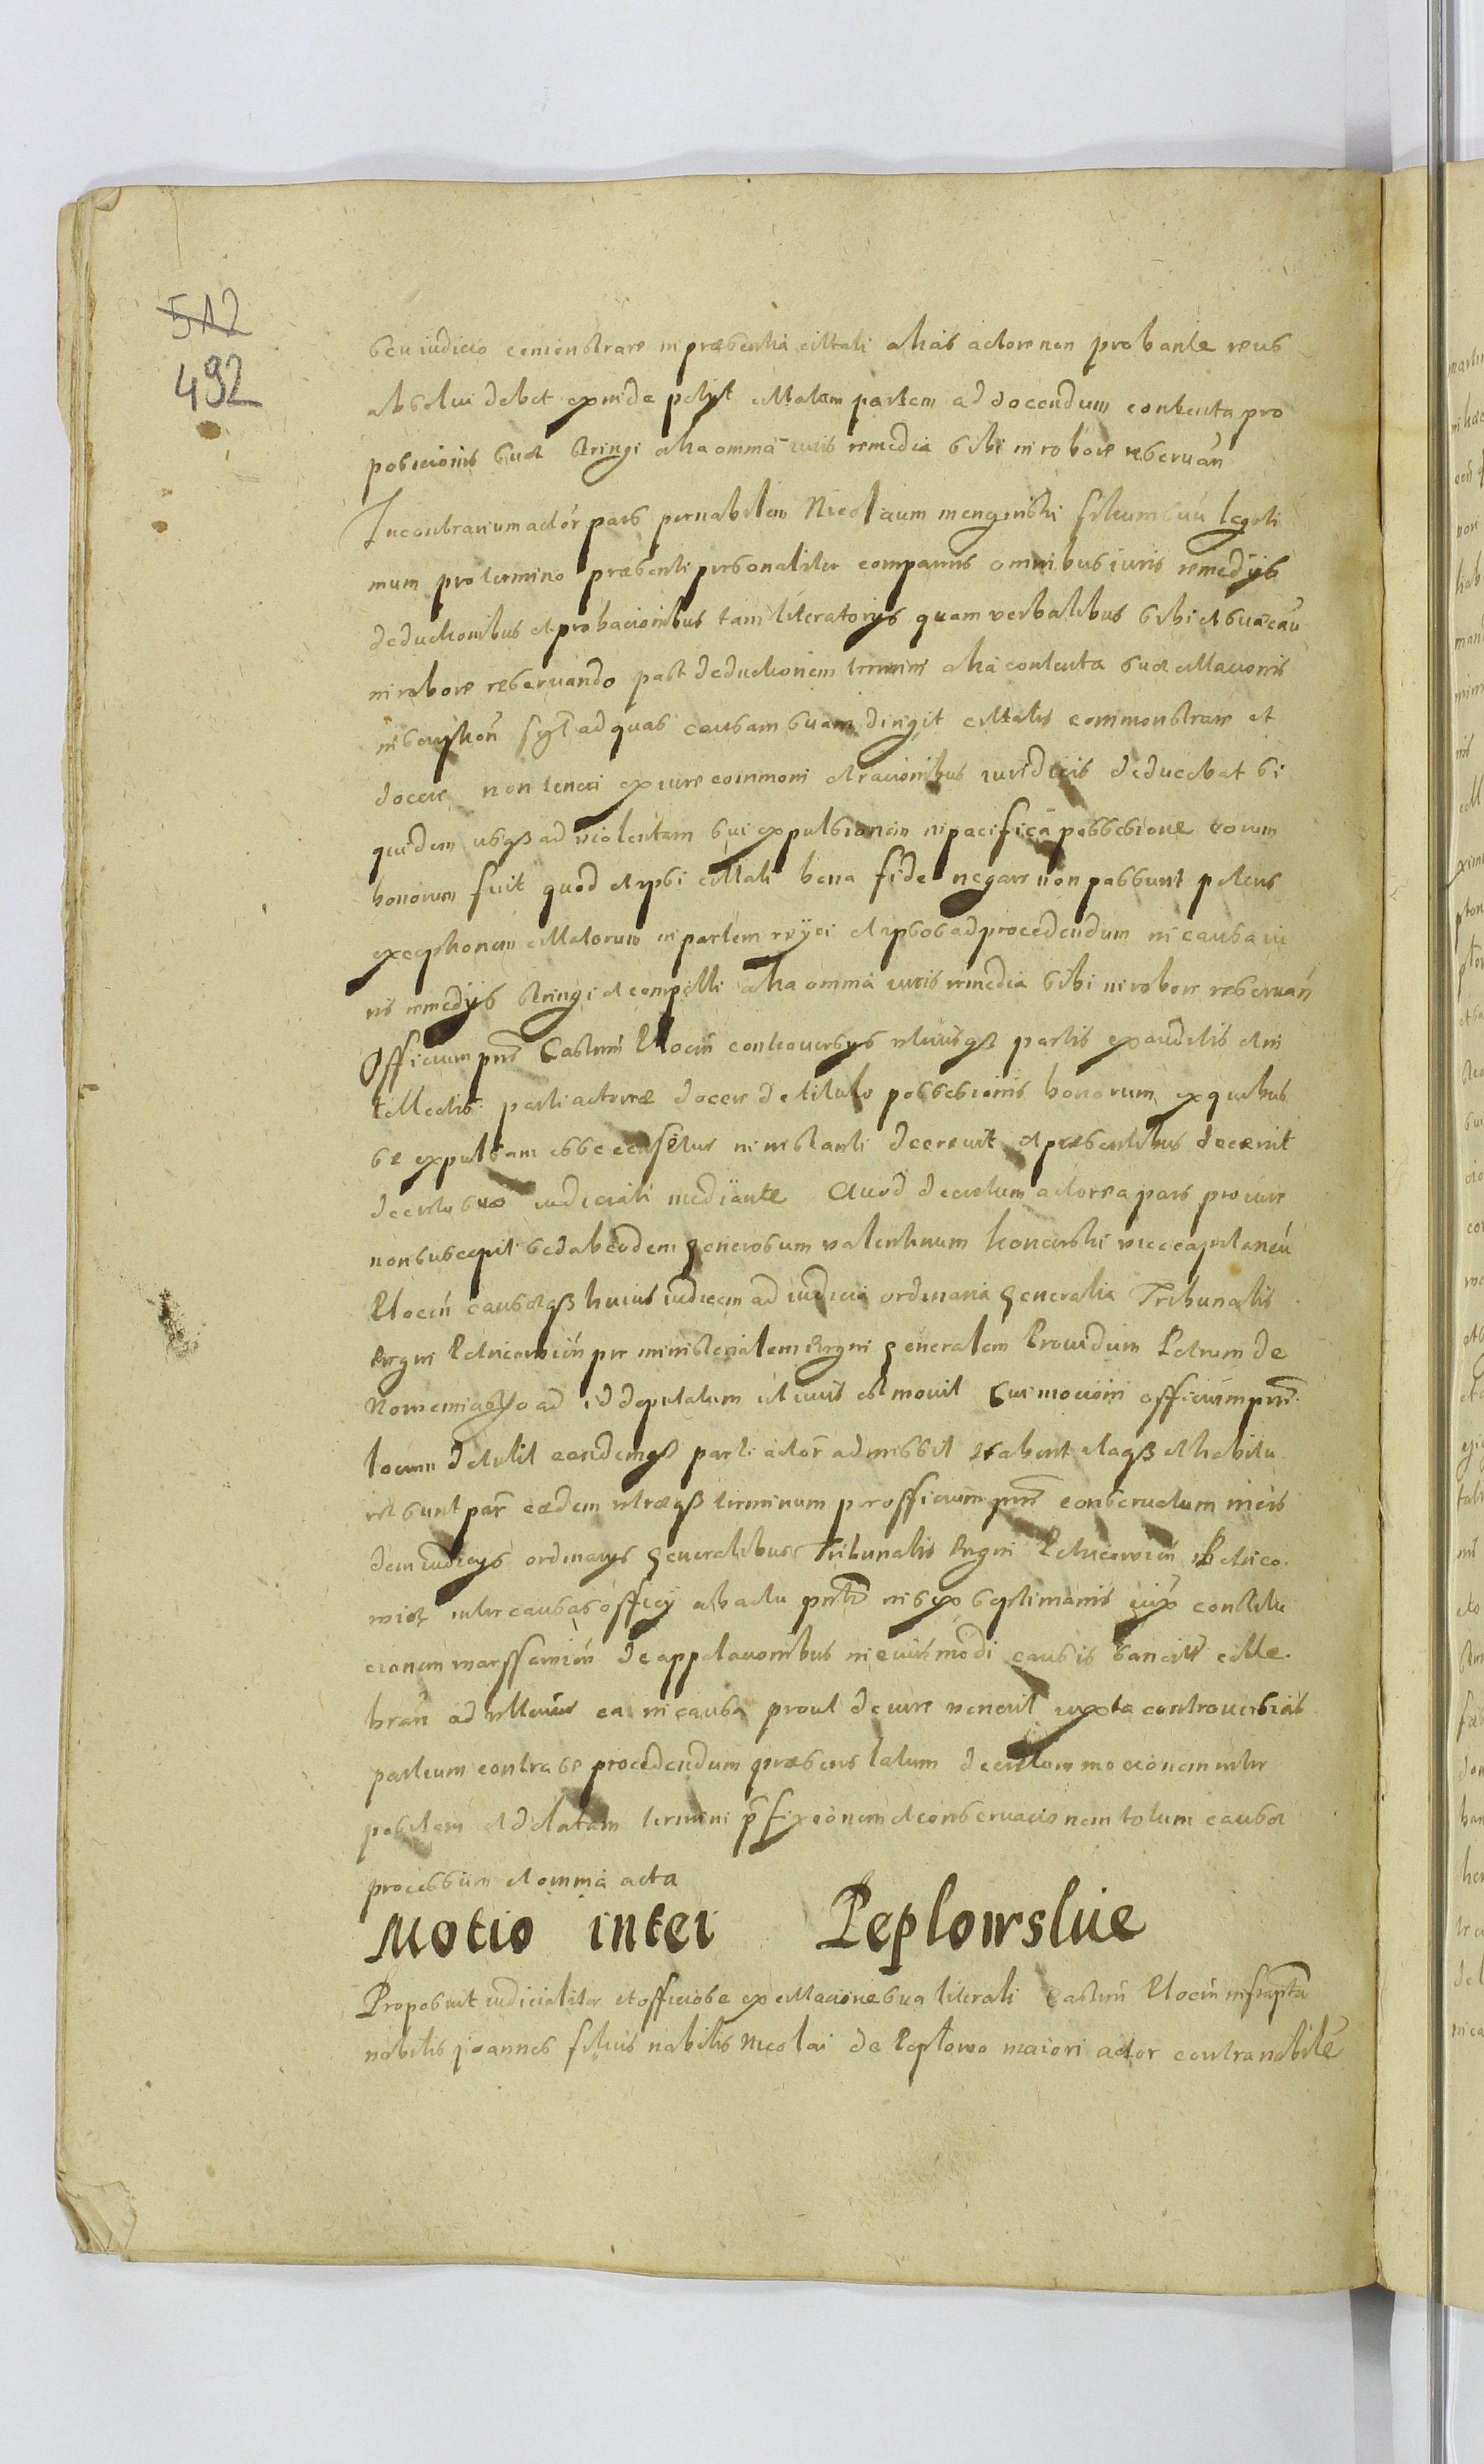 512
492
seu iudicio comonstrare in præsentia citati alias actore non probante reus
absolui debet exinde petijt citatam partem ad docendum contenta pro
posicionis suæ stringi alia omnia iuris remedia sibi in robore reseruan
In contrarium actor pars per nobilem Nicolaum menginski filium suu legiti
mum pro termino præsenti personaliter comparens omnibus iuris remedijs
deductionibus et probacionibus tam literatorijs quam verbalibus sibi et suæ cau
in robore reseruando post deductionem termini alia contenta suæ citacionis
ad quas causam suam dirigit citatis commonstrare et
docere non teneri ex iure commoni et racionibus iuridicis deducebat si
quidem usqß ad violentam sui expulsionem in pacifica possesione eorum
bonorum fuit quod et ipsi citati bona fide negare non possunt petens
exceptionem citatorum in partem reijci et ipsos ad procedendum in causa iu
ris remedijs stringi et compelli alia omnia iuris remedia sibi in robore reseruan
Officium pns Castren Plocen controuersijs utriusqß partis exauditis et in
tellectis parti actoreæ docere de titulo possesionis bonorum ex quibus
se expulsam esse in instanti decreuit et præsentibus decernit
decreto suo iudiciali mediante Quod decretum actorea pars pro iure
non suscepit sed ab eodem generosum valentinum konarski vicecapitaneu
Plocen causæqß huius iudicem ad iudicia ordinaria generalia Tribunalis
Regni Petricouien per ministerialem Regni generalem Prouidum Petrum de
ad id deputatum ut iuris est mouit Cui mocioni officium pns
locum detulit eandemqß parti actor admissit
sunt par eædem utræqß terminum per officium pns conseruatum in eis
dem iudicijs ordinarijs generalibus Tribunalis Regni Petricouien Petrico
inter causas officij ab actu in sex septimanis iux constitu
cionem de appelacionibus in eiusmodi causis
bran ad ulterius ea in causa prout de iure venerit iuxta controuersias
partium contra se procedendum præsens latum decretum mocionem inter
positam et delatam termini pfixcionem et conseruacionem totum causæ
processum et omnia acta
Motio inter Peplowskie
Proposuit iudicialiter et officiose ex citacione sua literali Castren Plocen infrapta
nobilis joannes filius nobilis Nicolai de Peplowo maiori actor contra nobile